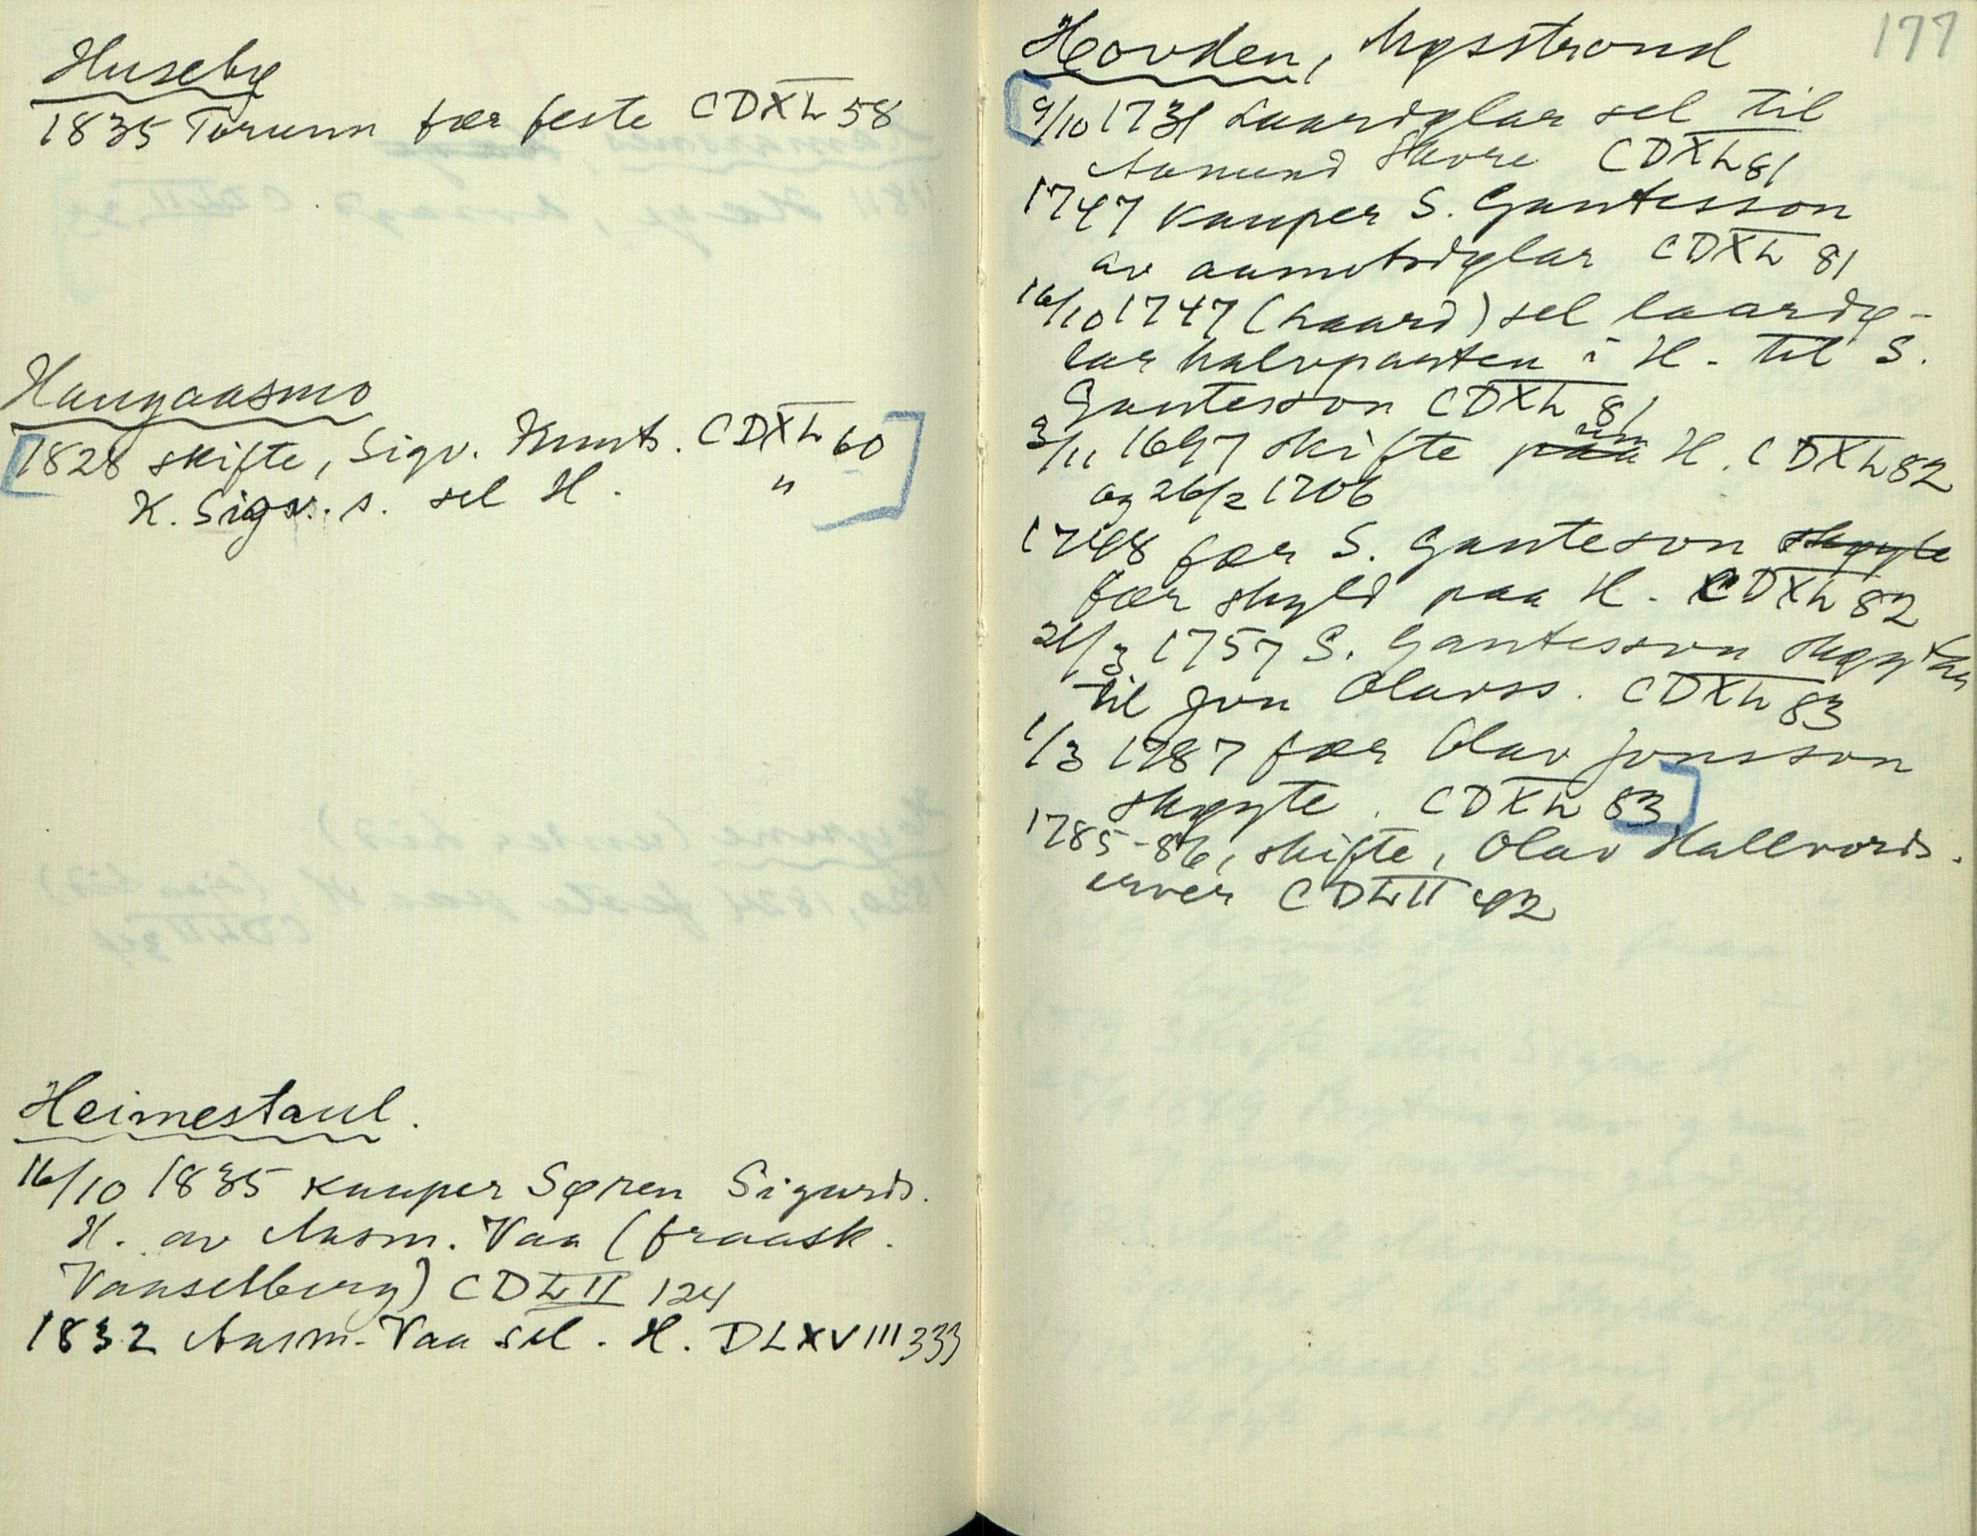 Huseby
1835 Torunn fær feste CDXL 58
Haugaasmo
1828 skifte, Sigv. Knuts. CDXL 60
K. Sigv. s. sel H. "
Heimestaul.
16/10 1835 kauper Søren Sigurds.
H. av Aasm. Vaa (fraask.
Vaaselberg) CDLII 124
1832 Aasm. Vaa sel. H. DLXVIII 333
177
Hovden, Møsstrond
9/10 1731 Laardølar sel til
Aamund Skore CDXL 81
1747 kauper S. Gautesson
av aamotsdølar CDXL 81
16/10 1747 (haard) sel laardø-
lar halvparten i H. til S.
Gautesson CDXL 81
3/11 1697 skifte paa um H. CDXL 82
og 26/2 1706
1748 fær S. Gauteson skøyte
fær skyld paa H. CDXL 82
21/3 1757 S. Gautesson skøyter
til Jon Olavss. CDXL 83
1/3 1787 fær Olav Jonsson
skøyte. CDXL 83
1785-86, skifte, Olav Hallvords.
erver CDLII 42